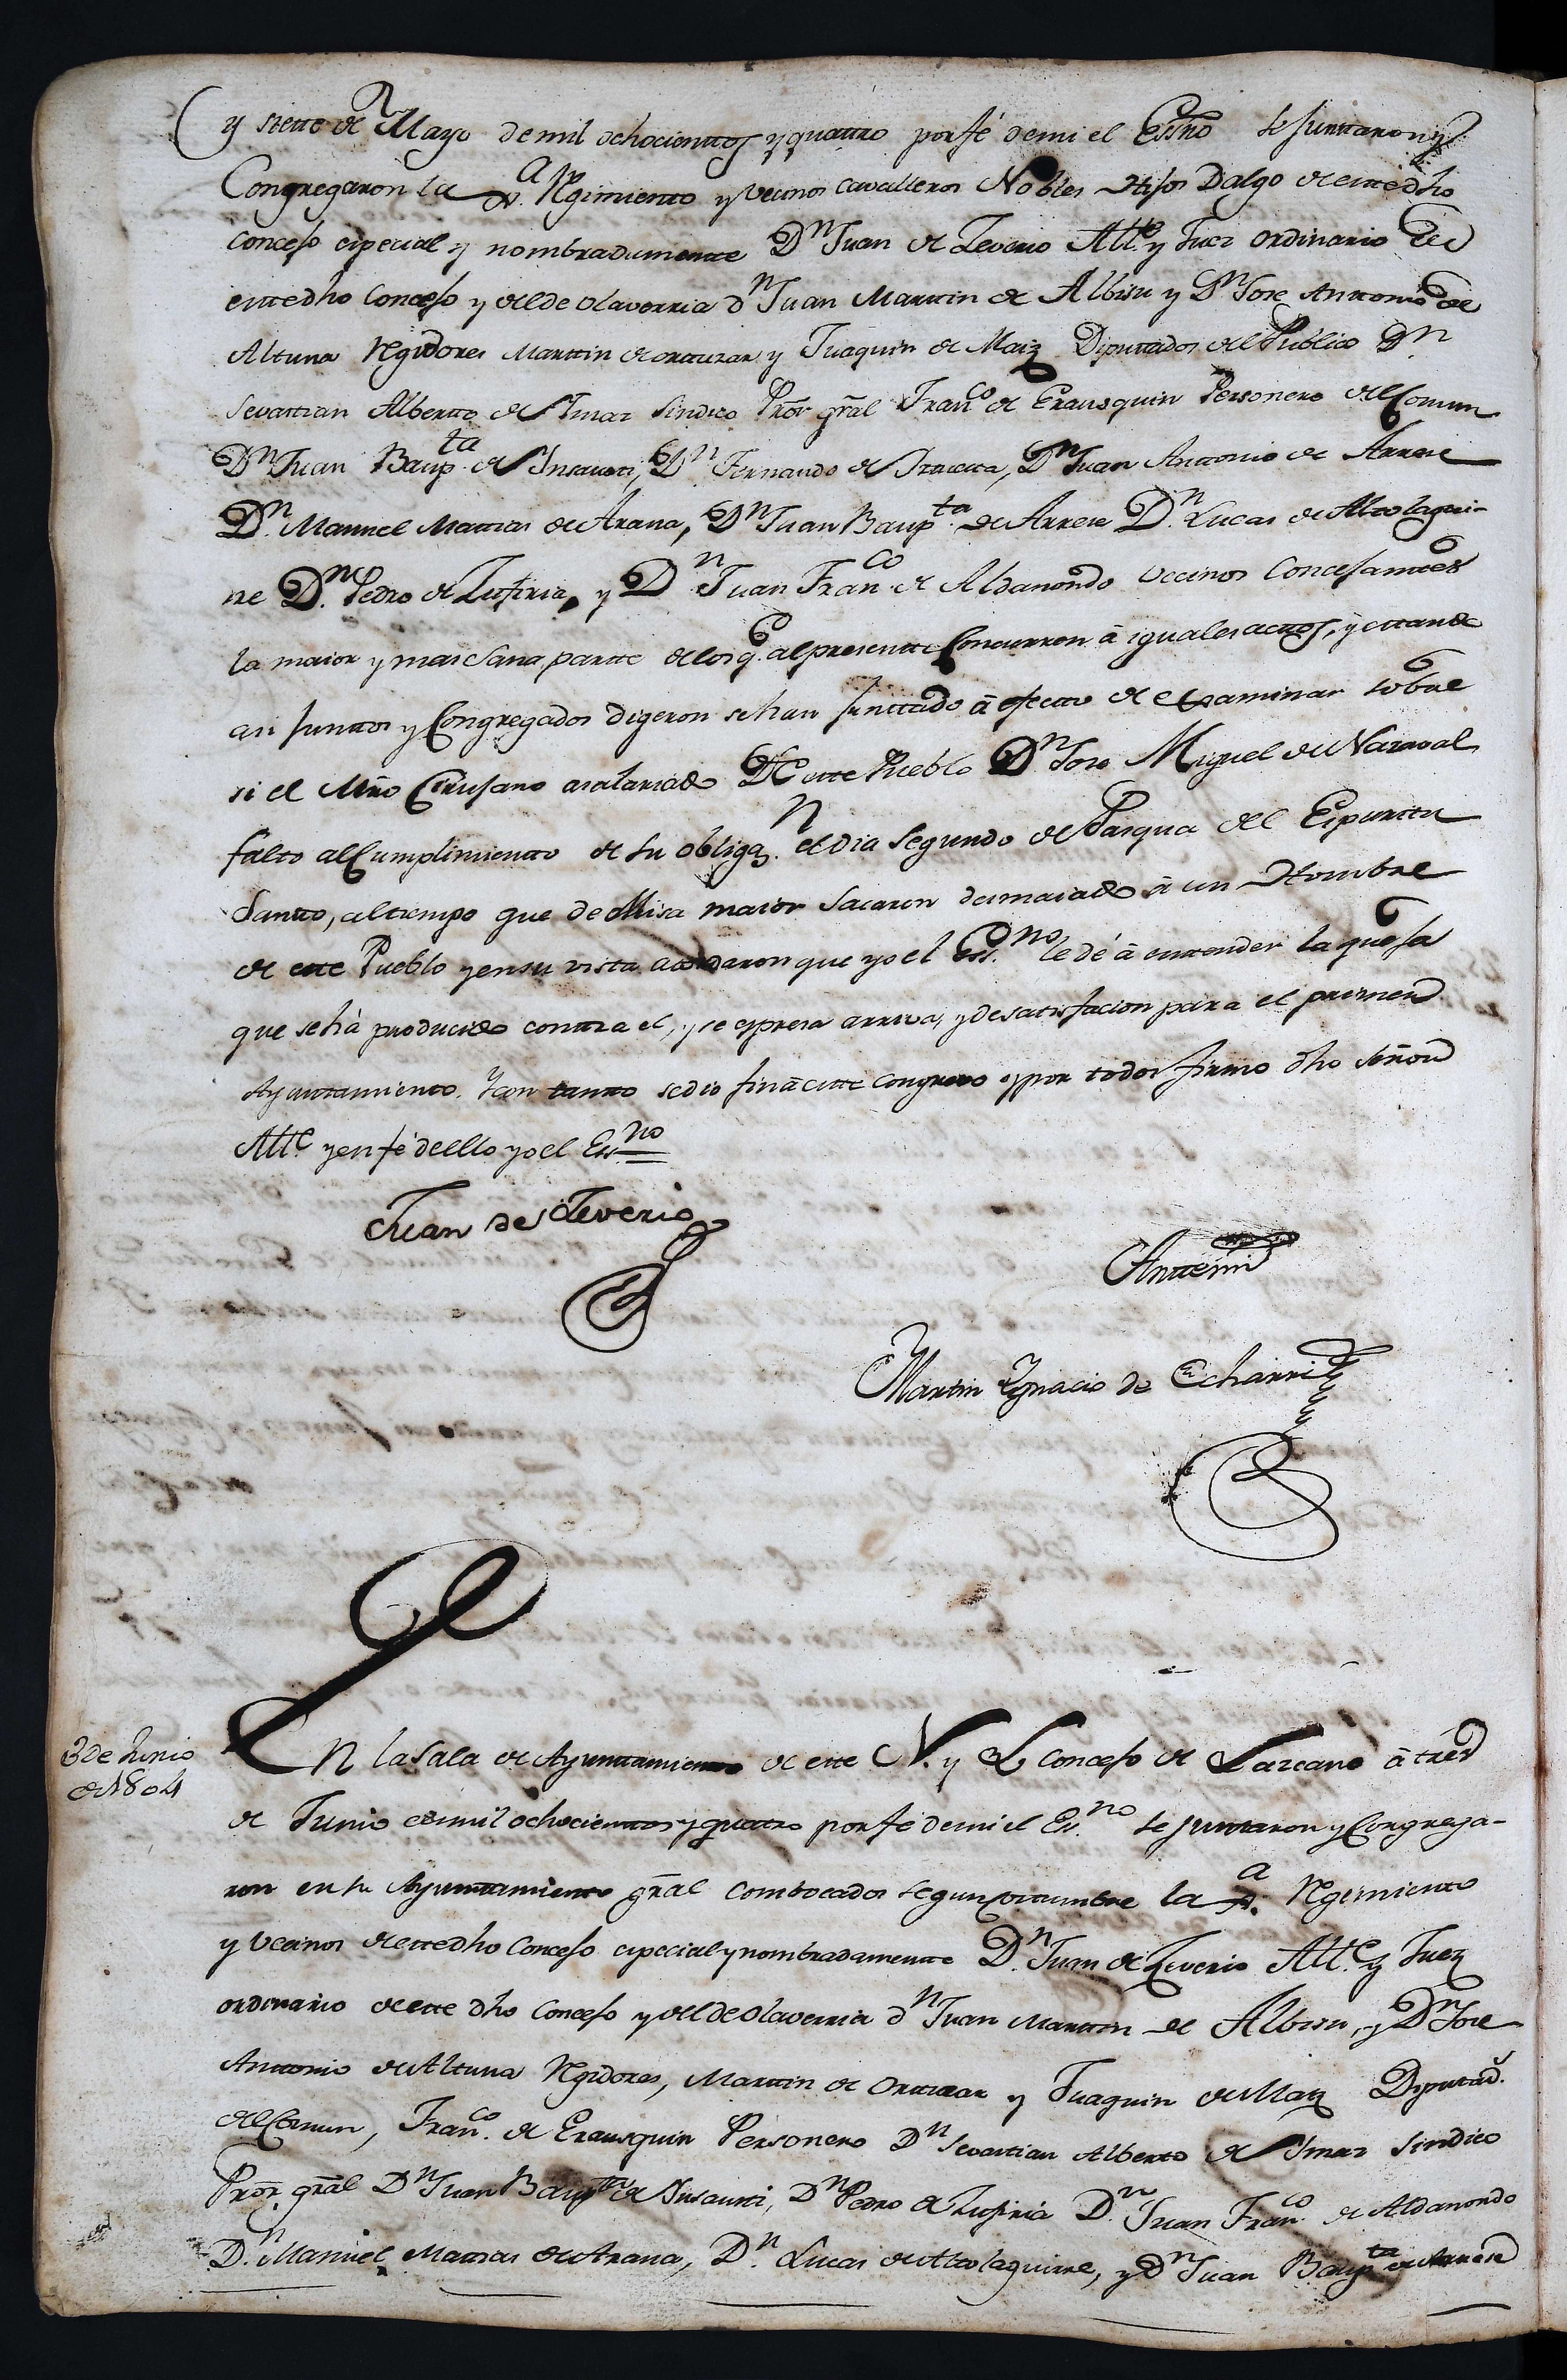 y siette de Mayo de mil ochocienttos y quattro por fé de mi el Essno se Junttaron y
Congregaron la Jª. Rgimiento y vecinos Cavalleros Nobles Hijos Dalgo de estte dho
Concejo especial y nombradamentte Dn Juan de Zeverio Alte y Juez ordinario de
estte dho Concejo y el de olaverria dn Juan Marttin de Albisu y Dn Jose Anttonio de
Altuna Rgidores Marttin de orttuzar y Juaquin de Maiz Diputtados del Publico Dn
Sevasttian Albertto de Imaz Sindico Pror gral Franco de Erausquin Personero del Comun
Dn Juan Baupta de Insausti, Dn Fernando de Itturrta, Dn Juan Anttonio de Arrese
Dn Manuel Mattias de Arana, Dn Juan Baupta de Arrese Dn Lucas de Altolagui-
rre Dn Pedro de Lufiria, y Dn Juan Franco de Aldanondo vecinos Concejanttes
la maior y mas Sana partte de los q. al presentte Concurren à iguales acttos, y esttando
asi Junttos y Congregados digeron se han Junttado à efectto de examinar sobre
si el Mro Cirujano asalariado de estte Pueblo Dn Jose Miguel de Nazaval
falto al Cumplimientto de su obligan. el dia Segundo de Pasqua del Espirittu
Santto, al tiempo que de Misa maior Sacaron desmaiado à un Hombre
de estte Pueblo y en su vista acordaron que yo el Essno le dé à enttender la queja
que se hà producido conttra el, y se espresa arriva, y de satisfacion para el primer
Ayunttamiento. Y con tantto se dio fin à estte congreso y por todos firmo dho Señor
Alte y en fé de ello yo el Essno
Juan de Zeverio
Anttemi
Martin Ygnacio de Echarri
3 de Junio
de 1804
En la Sala de Ayunttamientto de estte N. y L. Concejo de Lazcano à tres
de Junio de mil ochocienttos y quattro por fé de mi el Essno se Junttaron y Congrega-
ron en su Ayunttamientto gral combocados segun costtumbre la Jª. Rgimientto
y vecinos de estte dho Concejo especial y nombradamentte Dn Juan de Zeverio Alte y Juez
ordinario de estte dho Concejo y el de olaverria dn Juan Marttin de Albisu, y Dn Jose
Anttonio de Altuna Rgidores, Marttin de Orttuzar y Juaquin de Maiz Diputtads.
del Comun, Franco. de Erausquin Personero Dn Sevasttian Alberto de Imaz Sindico
Pror. gral Dn Juan Baupta de Insausti, Dn Pedro de Lufiria Dn Juan Franco de Aldanondo
Dn Manuel Mattias de Arana, Dn Lucas de Altolaguirre, y Dn Juan Baupta de Arrese